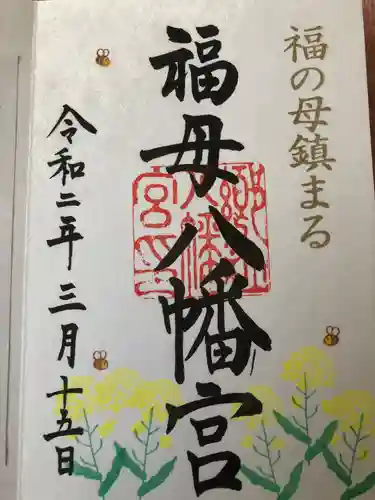 福の母鎮まる
福母八幡宮
令和二年三月十五日